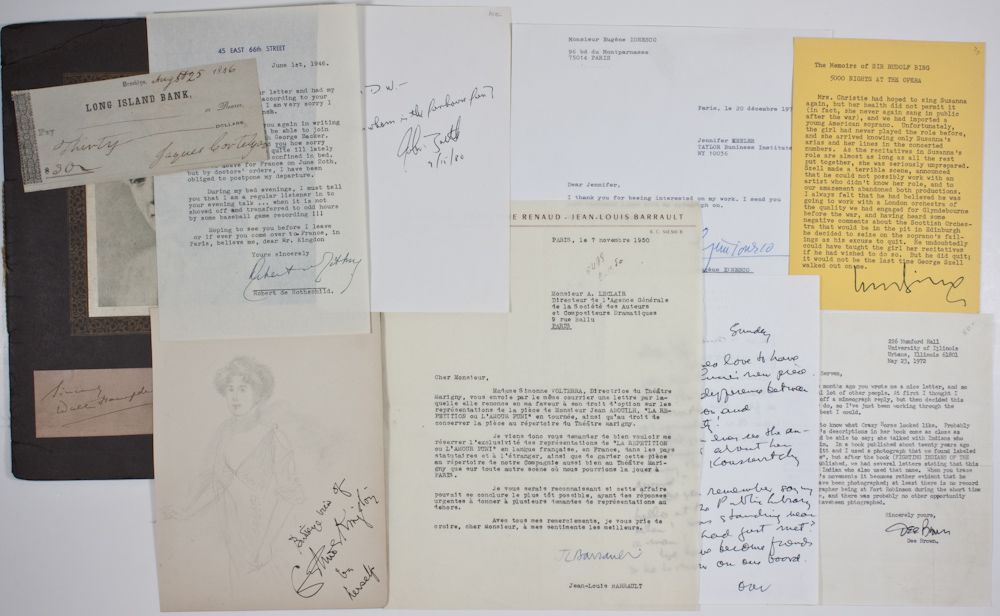 Brooklyn, Augst 25 1856
LONG ISLAND BANK,
Pay
DOLLARS,
Thirty
$30
45 EAST 66th STREET
June 1st, 1946.
r letter and had my
according to your
I am very sorry I
you again in writing
be able to join
h George Backer.
you how sorry
quite ill lately
confined in bed.
leave for France on June 20th,
but by doctors' orders, I have been
obliged to postpone my departure.
During my bed evenings, I must tell
you that I am a regular listener in to
your evening talk ... when it is not
shoved off and transferred to odd hours
by some baseball game recording !!!
Hoping to see you before I leave
or if ever you come over to France, in
Paris, believe me, dear Mr. Kingdon
Yours sincerely
Robert de Rothschild.
D.W.—
9/15/80
Monsieur Eugène IONESCO
96 bd du Montparnasse
75014 PARIS
Paris, le 20 décembre 197
Jennifer
TAYLOR Business Institute
NY 10036
Dear Jennifer,
I thank you for beeing interested on my work. I send you
gn on.
Eugène IONESCO
The Memoirs of SIR RUDOLF BING
5000 NIGHTS AT THE OPERA
Mrs. Christie had hoped to sing Susanna
again, but her health did not permit it
(in fact, she never again sang in public
after the war), and we had imported a
young American soprano. Unfortunately,
the girl had never played the role before,
and she arrived knowing only Susanna's
arias and her lines in the concerted
numbers. As the recitatives in Susanna's
role are almost as long as all the rest
put together, she was seriously unprepared.
Szell made a terrible scene, announced
that he could not possibly work with an
artist who didn't know her role, and to
our amazement abandoned both productions.
I always felt that he had believed he was
going to work with a London orchestra of
the quality we had engaged for Glyndebourne
before the war, and having heard some
negative comments about the Scottish Orches-
tra that would be in the pit in Edinburgh
he decided to seize on the soprano's fail-
ings as his excuse to quit. He undoubtedly
could have taught the girl her recitatives
if he had wished to do so. But he did quit;
it would not be the last time George Szell
walked out on me.
E RENAUD - JEAN-LOUIS BARRAULT
PARIS, le 7 novembre 1950
Monsieur A. LECLAIR
Directeur de l'Agence Générale
de la Société des Auteurs
et Compositeurs Dramatiques
9 rue Ballu
PARIS
Cher Monsieur,
Madame Simonne VOLTERRA, Directrice du Théâtre
Marigny, vous envoie par le même courrier une lettre par la-
quelle elle renonce en ma faveur à son droit d'option sur les
représentations de la pièce de Monsieur Jean ANOUILH, "LA RE-
PETITION ou L'AMOUR PUNI" en tournée, ainsi qu'au droit de
conserver la pièce au répertoire du Théâtre Marigny.
Je viens donc vous demander de bien vouloir me
réserver l'exclusivité des représentations de "LA REPETITION
ou L'AMOUR PUNI" en langue française, en France, dans les pays
statutaires et à l'étranger, ainsi que de garder cette pièce
au répertoire de notre Compagnie aussi bien au Théâtre Mari-
gny que sur toute autre scène où nous pourrions la jouer à
PARIS.
Je vous serais reconnaissant si cette affaire
pouvait se conclure le plus tôt possible, ayant des réponses
urgentes à donner à plusieurs demandes de représentations au
dehors.
Avec tous mes remerciements, je vous prie de
croire, cher Monsieur, à mes sentiments les meilleurs.
JLBarrault
Jean-Louis BARRAULT
by
herself
Sunday
love to have
new piece
difference between
and
about her
remember saying
Public Library
standing near
had just met?
become friends
on our board.
over
226 Mumford Hall
University of Illinois
Urbana, Illinois 61801
May 23, 1972
months ago you wrote me a nice letter, and so
lot of other people. At first I thought I
off a mimeograph reply, but then decided this
do, so I've just been working through the
best I could.
to know what Crazy Horse looked like. Probably
's descriptions in her book come as close as
be able to say; she talked with Indians who
In a book published about twenty years ago
itt and I used a photograph that we found labeled
", but after the book (FIGHTING INDIANS OF THE
ublished, we had several letters stating that this
Indian who also used that name. When you trace
's movements it becomes rather evident that he
have been photographed; at least there is no record
grapher being at Fort Robinson during the short time
e, and there was probably no other opportunity
have been photographed.
Sincerely yours,
Dee Brown
Dee Brown.